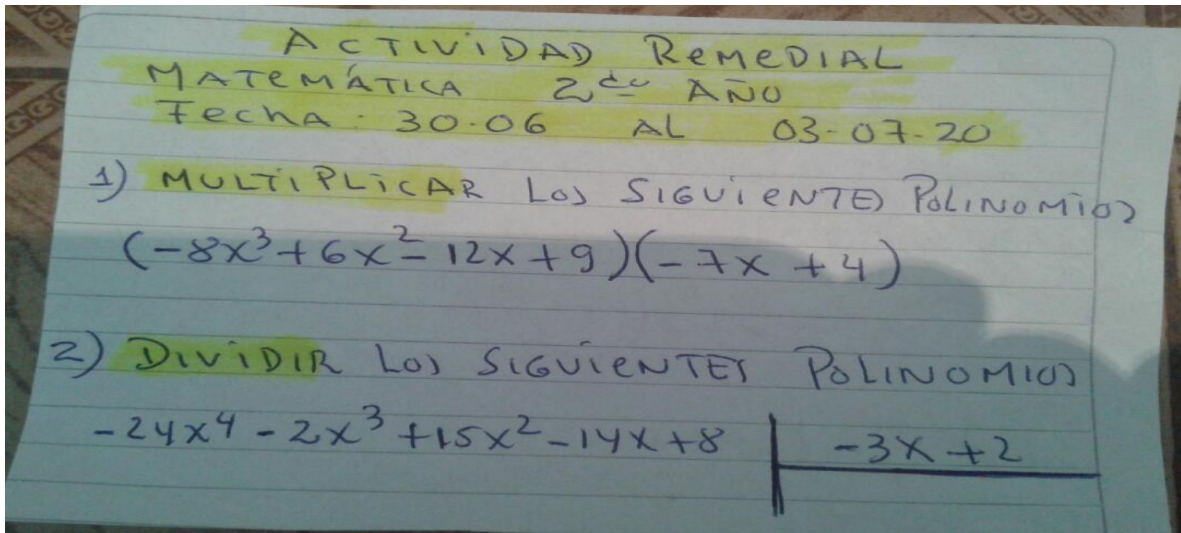 ACTIVIDAD REMEDIAL
MATEMÁTICA 2do AÑO
Fecha: 30.06 AL 03-07-20
1) MULTIPLICAR LOS SIGUIENTES POLINOMIOS
(-8x³+6x²-12x+9)(-7x+4)
2) DIVIDIR LOS SIGUIENTES POLINOMIOS
-24x⁴-2x³+15x²-14x+8 | -3x+2